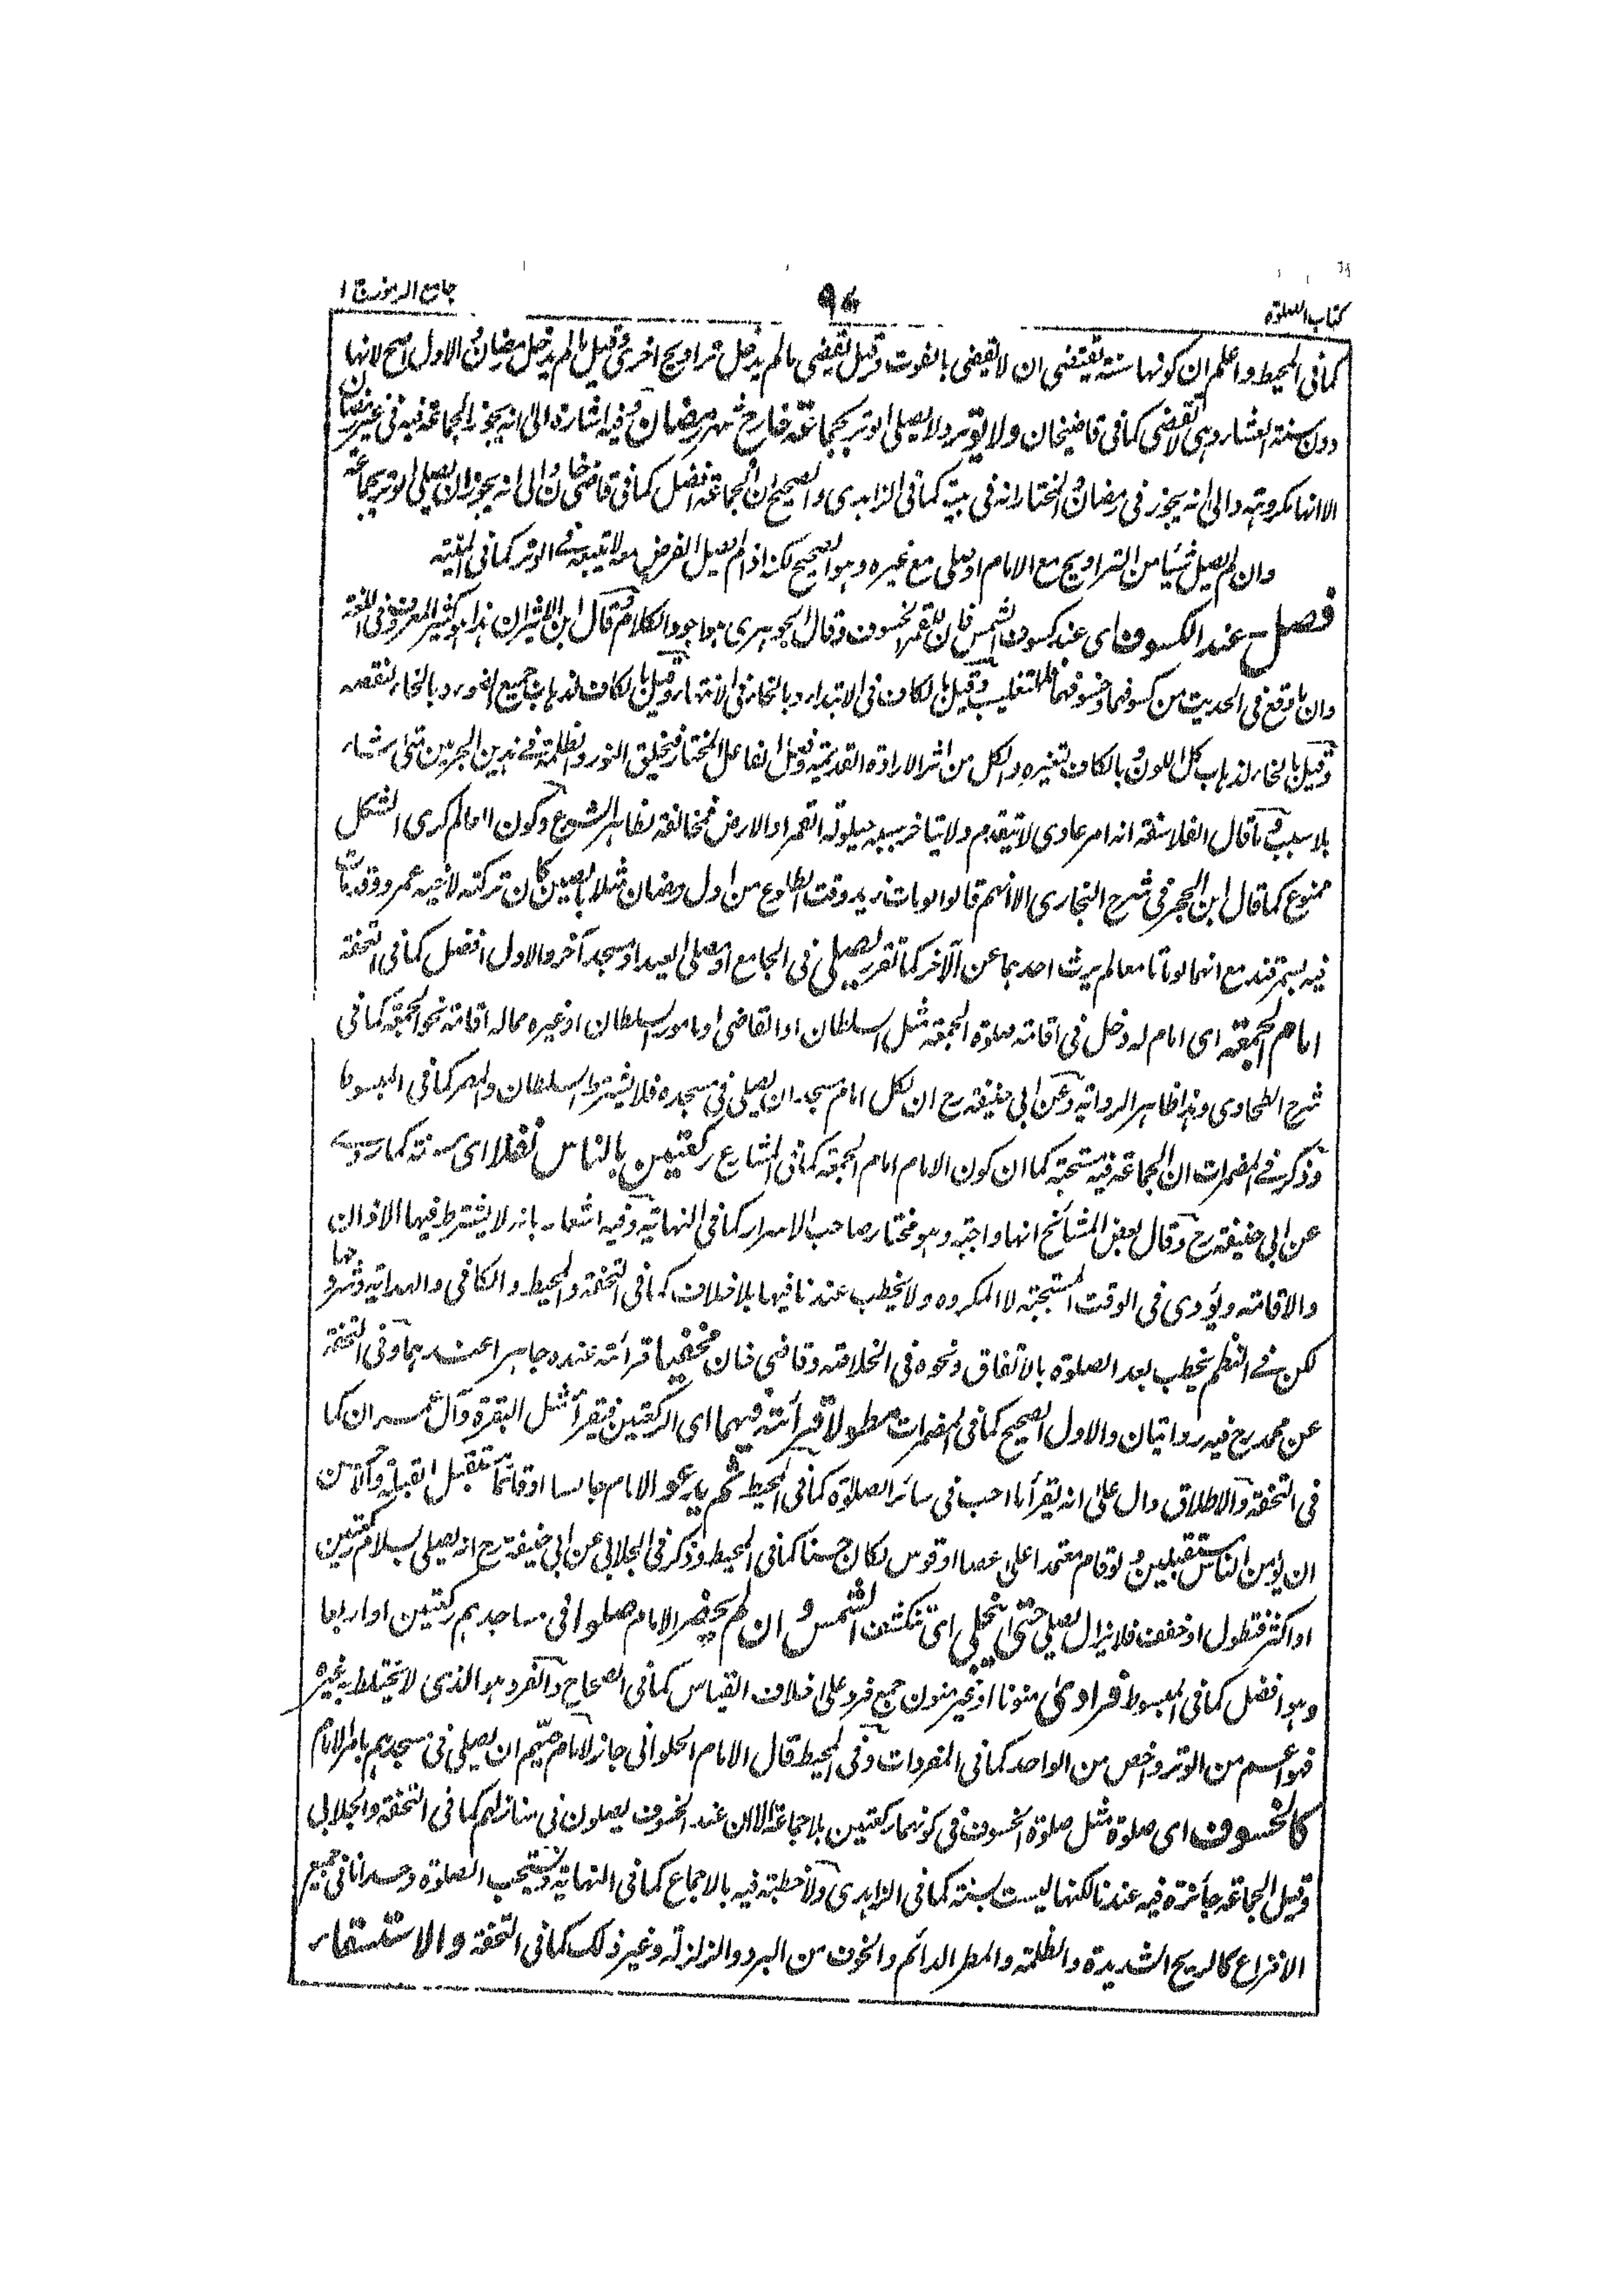 كتاب الصلوة ٩٤ جامع الرموز ج ١
كما فى المحيط واعلم ان كونها سنة تقتضى ان لا تقضى بالفوت وقيل تقضى ما لم يدخل تراويح اخرى وقيل ما لم يدخل رمضان والاول اصح لانها
دون سنة العشاء وهى لا تقضى كما فى قاضيخان ولا يوتر ولا يصلى الوتر بجماعة خارج شهر رمضان وفيه اشارة الى انه يجوز الجماعة فيه فى غير رمضان
الا انها مكروهة والى انه يجوز فى رمضان والمختار انه فى بيته كما فى الزاهدى والصحيح ان الجماعة افضل كما فى قاضى خان والى انه يجوز ان يصلى الوتر بجماعة
وان لم يصل شيئا من التراويح مع الامام او صلى مع غيره وهو الصحيح لكنه اذا لم يصل الفرض معه لا يتبعه فى الوتر كما فى المنية
فصل عند الكسوف اى عند كسوف الشمس فان للقمر الخسوف وقال الجوهرى هو اجود الكلام وقال ابن الاثير ان هذا هو الكثير المعروف فى اللغة
وان ما وقع فى الحديث من كسوفهما وخسوفهما فللتغليب وقيل بالكاف فى الابتداء وبالخاء فى الانتهاء وقيل بالكاف لذهاب جميع الضوء وبالخاء لنقصه
وقيل بالخاء لذهاب كل اللون وبالكاف لتغيره والكل من اثر الارادة القديمة وفعل الفاعل المختار فيخلق النور والظلمة فى هذين الجرمين متى شاء
بلا سبب وما قال الفلاسفة انه امر عادى لا يتقدم ولا يتاخر سببه حيلولة القمر او الارض فمخالفة لظاهر الشرع وكون العالم كرى الشكل
ممنوع كما قال ابن الحجر فى شرح البخارى الا انهم قالوا لو مات زيد وقت الطلوع من اول رمضان مثلا بالصين كان تركته لاخيه عمرو وقد مات
فيه بسمرقند مع انهما لو ماتا معا لم يرث احدهما عن الآخر كما تقرر يصلى فى الجامع او مصلى العيد او مسجد آخر والاول افضل كما فى التحفة
امام الجمعة اى امام له دخل فى اقامة صلوة الجمعة مثل السلطان او القاضى او مامور السلطان او غيره مما له اقامة نحو الجمعة كما فى
شرح الطحاوى وهذا ظاهر الرواية وعن ابى حنيفة رح ان لكل امام مسجد ان يصلى فى مسجده فلا يشترط السلطان والمصر كما فى المبسوط
وذكر فى المضمرات ان الجماعة فيه مستحبة كما ان كون الامام امام الجمعة كما فى المشارع ركعتين بالناس نفلا اى سنة كما روى
عن ابى حنيفة رح وقال بعض المشائخ انها واجبة وهو مختار صاحب الاسرار كما فى النهاية وفيه اشعار بانه لا يشترط فيها الاذان
والاقامة ويؤدى فى الوقت المستحبة لا المكروه ولا يخطب عندنا فيها بلا خلاف كما فى التحفة والمحيط والكافى والهداية وشروحها
لكن فى النظم يخطب بعد الصلوة بالاتفاق ونحوه فى الخلاصة وقاضى خان مخفيا قرائته عنده جاهرا عندهما وفى التحفة
عن محمد رح فيه روايتان والاول الصحيح كما فى المضمرات مطولا قرائته فيهما اى الركعتين فيقرأ مثل البقرة وآل عمران كما
فى التحفة والاطلاق دال على انه يقرأ ما احب فى سائر الصلوة كما فى المحيط ثم يدعو الامام جالسا او قائما مستقبل القبلة والاحسن
ان يؤمن الناس مستقبلين ولو قام معتمدا على عصا او قوس لكان حسنا كما فى المحيط وذكر فى الجلابى عن ابى حنيفة رح انه يصلى بسلام ركعتين
او اكثر فتطول او خففت فلا يزال يصلى حتى تنجلى اى تنكشف الشمس و ان لم يحضر الامام صلوا فى مساجدهم ركعتين او اربعا
وهو افضل كما فى المبسوط فرادى منونا او غير منون جمع فرد على خلاف القياس كما فى الصحاح والفرد هو الذى لا يختلط به غيره
فهو اعم من الوتر واخص من الواحد كما فى المفردات وفى المحيط قال الامام الحلوانى جاز لامام حيهم ان يصلى فى مسجدهم بامر الامام
كالخسوف اى صلوة مثل صلوة الخسوف فى كونهما ركعتين بلا جماعة الا ان عند الخسوف يصلون فى منازلهم كما فى التحفة والجلابى
وقيل الجماعة جائزة فيه عندنا لكنها ليست بسنة كما فى الزاهدى ولا خطبة فيه بالاجماع كما فى النهاية ويستحب الصلوة وحدانا فى جميع
الافزاع كالريح الشديدة والظلمة والمطر الدائم والخوف من البرد والزلزلة وغير ذلك كما فى التحفة والاستسقاء